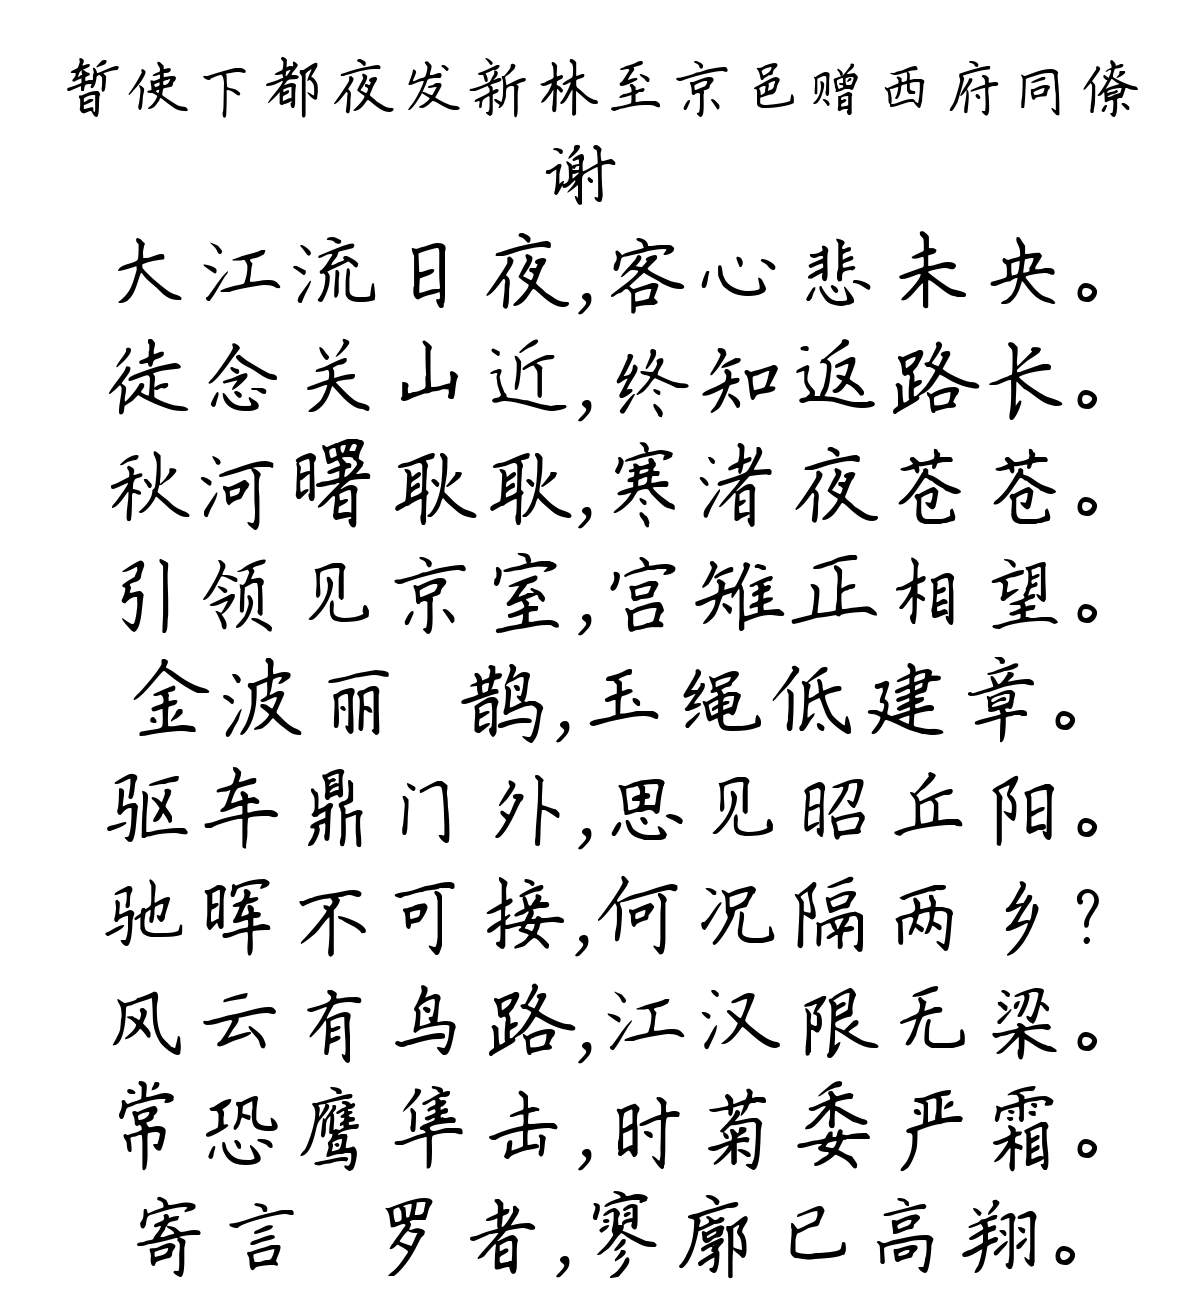 暂使下都夜发新林至京邑赠西府同僚
谢
大江流日夜,客心悲未央。
徒念关山近,终知返路长。
秋河曙耿耿,寒渚夜苍苍。
引领见京室,宫雉正相望。
金波丽 鹊,玉绳低建章。
驱车鼎门外,思见昭丘阳。
驰晖不可接,何况隔两乡?
风云有鸟路,江汉限无梁。
常恐鹰隼击,时菊委严霜。
寄言 罗者,寥廓已高翔。